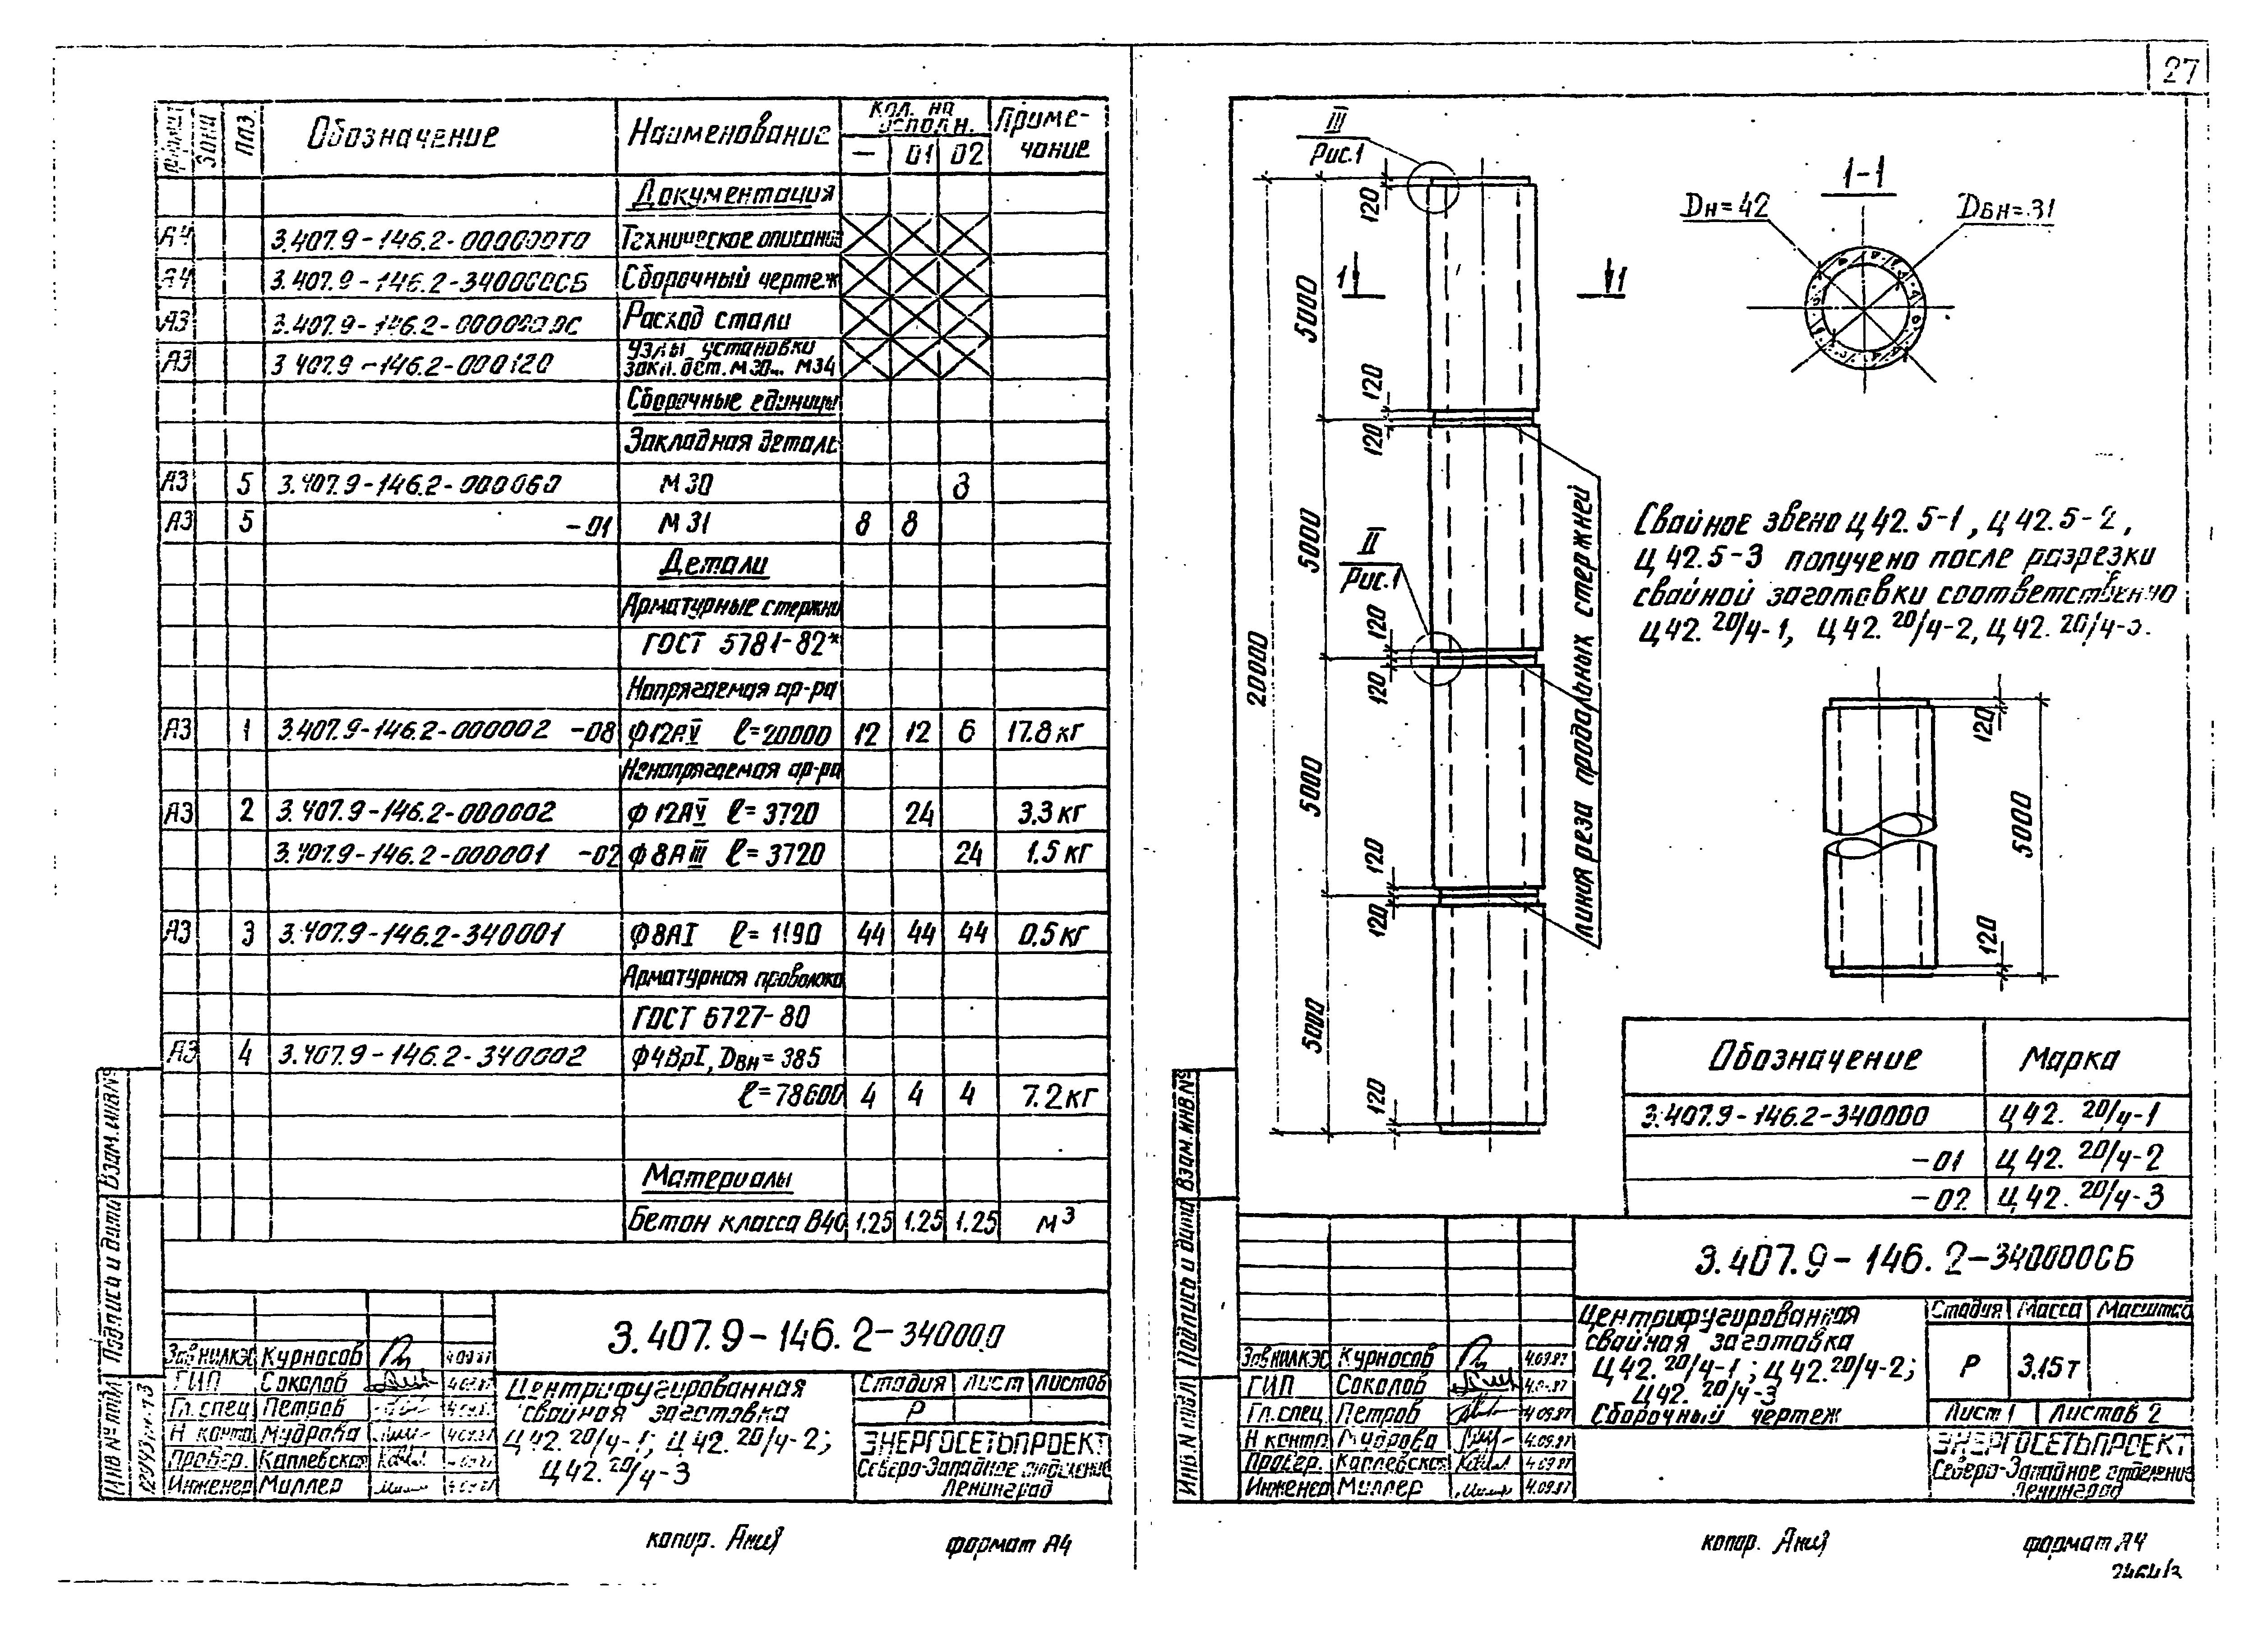 27
Зона Поз Обозначение Наименование Кол. на исполн. Приме-чание
— 01 02
Документация
А4 3.407.9-146.2-000000ТО Техническое описание
А4 3.407.9-146.2-340000СБ Сборочный чертеж
А3 3.407.9-146.2-000000РС Расход стали
А3 3.407.9-146.2-000120 Узлы установки
закл. дет. М30... М34
Сборочные единицы
Закладная деталь
А3 5 3.407.9-146.2-000060 М30 8
А3 5 -01 М31 8 8
Детали
Арматурные стержни
ГОСТ 5781-82*
Напрягаемая ар-ра
А3 1 3.407.9-146.2-000002 -08 Ф12АV ℓ=20000 12 12 6 17.8 кг
Ненапрягаемая ар-ра
А3 2 3.407.9-146.2-000002 Ф12АV ℓ=3720 24 3.3 кг
3.407.9-146.2-000001 -02 Ф8АIII ℓ=3720 24 1.5 кг
А3 3 3.407.9-146.2-340001 Ф8АI ℓ=1190 44 44 44 0.5 кг
Арматурная проволока
ГОСТ 6727-80
А3 4 3.407.9-146.2-340002 Ф4ВрI, Dвн=385
ℓ=78600 4 4 4 7.2 кг
Материалы
Бетон класса В40 1.25 1.25 1.25 м³
Взам. инв. №
Подпись и дата
Инв № подл
3.407.9-146.2-340000
Зав НИЛКЭС Курносов 4.09.87
ГИП Соколов
Гл. спец Петров
Н контр Мудрова
Провер. Каплевская
Инженер Миллер
Центрифугированная
свайная заготовка
Ц42.20/4-1; Ц42.20/4-2;
Ц42.20/4-3
Стадия Лист Листов
Р
ЭНЕРГОСЕТЬПРОЕКТ
Северо-Западное отделение
Ленинград
копир.
формат А4
III
Рис.1
120
1
1
5000
120
120
II
Рис.1
5000
120
120
20000
5000
120
120
5000
120
линия реза продольных стержней
1-1
Dн=42
Dвн=31
Свайное звено Ц42.5-1, Ц42.5-2,
Ц42.5-3 получено после разрезки
свайной заготовки соответственно
Ц42.20/4-1, Ц42.20/4-2, Ц42.20/4-3.
120
5000
120
Обозначение Марка
3.407.9-146.2-340000 Ц42.20/4-1
-01 Ц42.20/4-2
-02 Ц42.20/4-3
Взам. инв. №
Подпись и дата
Инв. № подл
3.407.9-146.2-340000СБ
Зав НИЛКЭС Курносов 4.09.87
ГИП Соколов
Гл. спец. Петров 4.09.87
Н контр. Мудрова 4.09.87
Провер. Каплевская 4.09.87
Инженер Миллер 4.09.87
Центрифугированная
свайная заготовка
Ц42.20/4-1; Ц42.20/4-2;
Ц42.20/4-3
Сборочный чертеж
Стадия Масса Масштаб
Р 3.15т
Лист 1 Листов 2
ЭНЕРГОСЕТЬПРОЕКТ
Северо-Западное отделение
Ленинград
копир.
формат А4